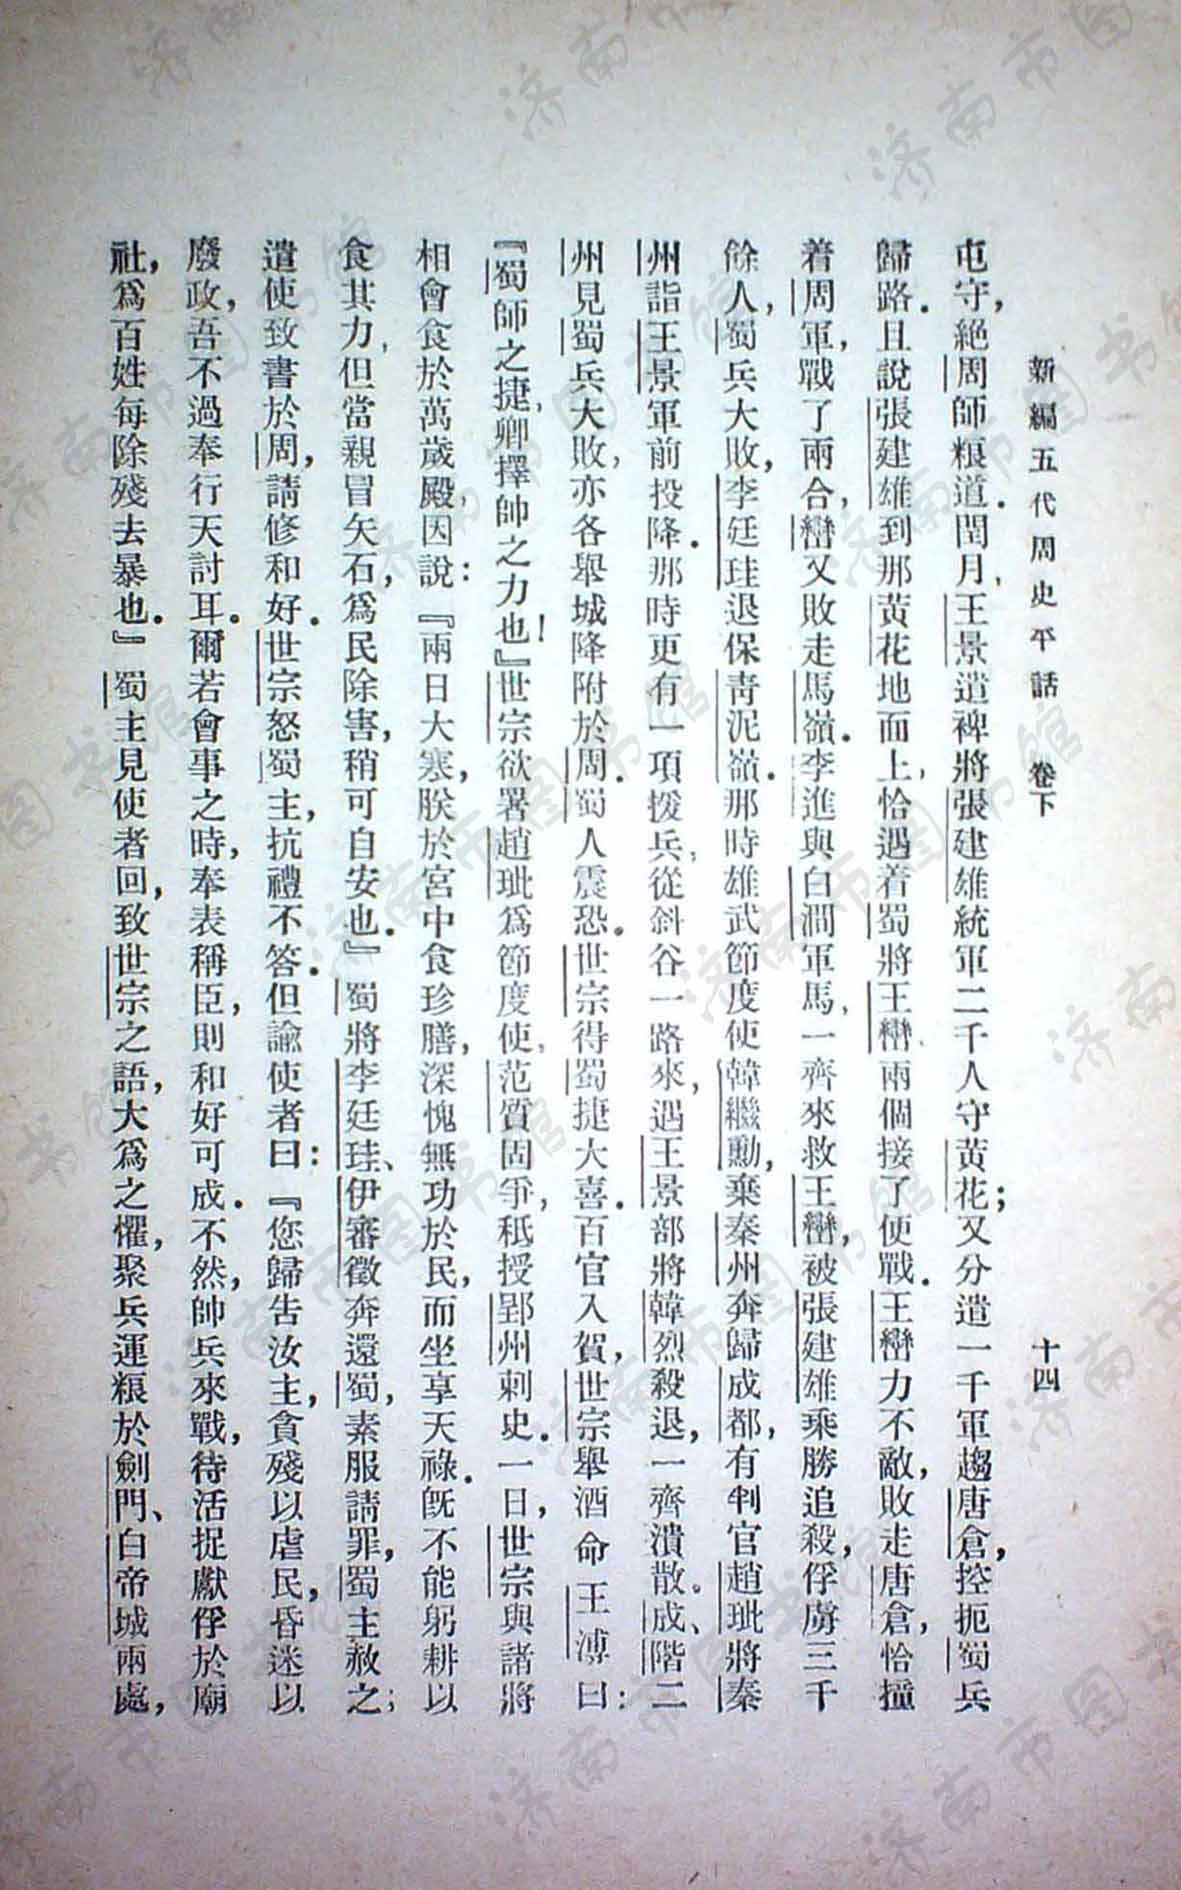 新編五代周史平話 卷下 十四
屯守，絕周師粮道．閏月，王景遣裨將張建雄統軍二千人守黃花；又分遣一千軍趨唐倉，控扼蜀兵
歸路．且說張建雄到那黃花地面上，恰遇着蜀將王巒，兩個接了便戰．王巒力不敵，敗走唐倉，恰撞
着周軍，戰了兩合，巒又敗走馬嶺．李進與白澗軍馬，一齊來救王巒，被張建雄乘勝追殺，俘虜三千
餘人，蜀兵大敗，李廷珪退保青泥嶺．那時雄武節度使韓繼勳，棄秦州奔歸成都，有判官趙玭將秦
州詣王景軍前投降．那時更有一項援兵，從斜谷一路來，遇王景部將韓烈殺退，一齊潰散。成、階二
州見蜀兵大敗，亦各舉城降附於周．蜀人震恐．世宗得蜀捷大喜．百官入賀，世宗舉酒命王溥曰：
『蜀師之捷，卿擇帥之力也！』世宗欲署趙玭爲節度使，范質固爭，秖授郢州刺史．一日，世宗與諸將
相會食於萬歲殿，因說：『兩日大寒，朕於宮中食珍膳，深愧無功於民，而坐享天祿．旣不能躬耕以
食其力，但當親冒矢石，爲民除害，稍可自安也．』蜀將李廷珪、伊審徵奔還蜀，素服請罪，蜀主赦之；
遣使致書於周，請修和好．世宗怒蜀主，抗禮不答．但諭使者曰：『您歸告汝主，貪殘以虐民，昏迷以
廢政，吾不過奉行天討耳．爾若會事之時，奉表稱臣，則和好可成．不然，帥兵來戰，待活捉獻俘於廟
社，爲百姓每除殘去暴也．』蜀主見使者回，致世宗之語，大爲之懼，聚兵運粮於劍門、白帝城兩處，
济南市图书馆